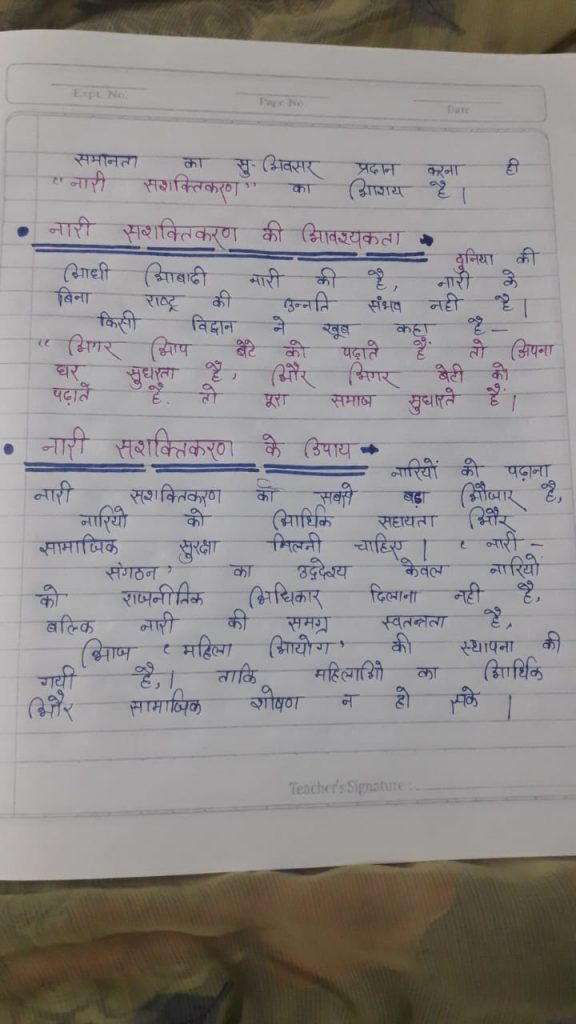 Expt. No.
Page No.
Date
समानता का सु-अवसर प्रदान करना ही
"नारी सशक्तिकरण" का आशय है।
• नारी सशक्तिकरण की आवश्यकता →
दुनिया की
आधी आबादी नारी की है, नारी के
बिना राष्ट्र की उन्नति संभव नही है।
किसी विद्वान ने खूब कहा है–
"अगर आप बेटे को पढ़ाते हैं तो अपना
घर सुधारता है, और अगर बेटी को
पढ़ाते है. तो पूरा समाज सुधारते हैं।
• नारी सशक्तिकरण के उपाय →
नारियों को पढ़ाना
नारी सशक्तिकरण का सबसे बड़ा औजार है,
नारियो को आर्थिक सहायता और
सामाजिक सुरक्षा मिलनी चाहिए। 'नारी –
संगठन' का उद्देश्य केवल नारियों
को राजनीतिक अधिकार दिलाना नही है,
बल्कि नारी की समग्र स्वतन्त्रता है,
आज 'महिला आयोग' की स्थापना की
गयी है,। ताकि महिलाओ का आर्थिक
और सामाजिक शोषण न हो सके।
Teacher's Signature :